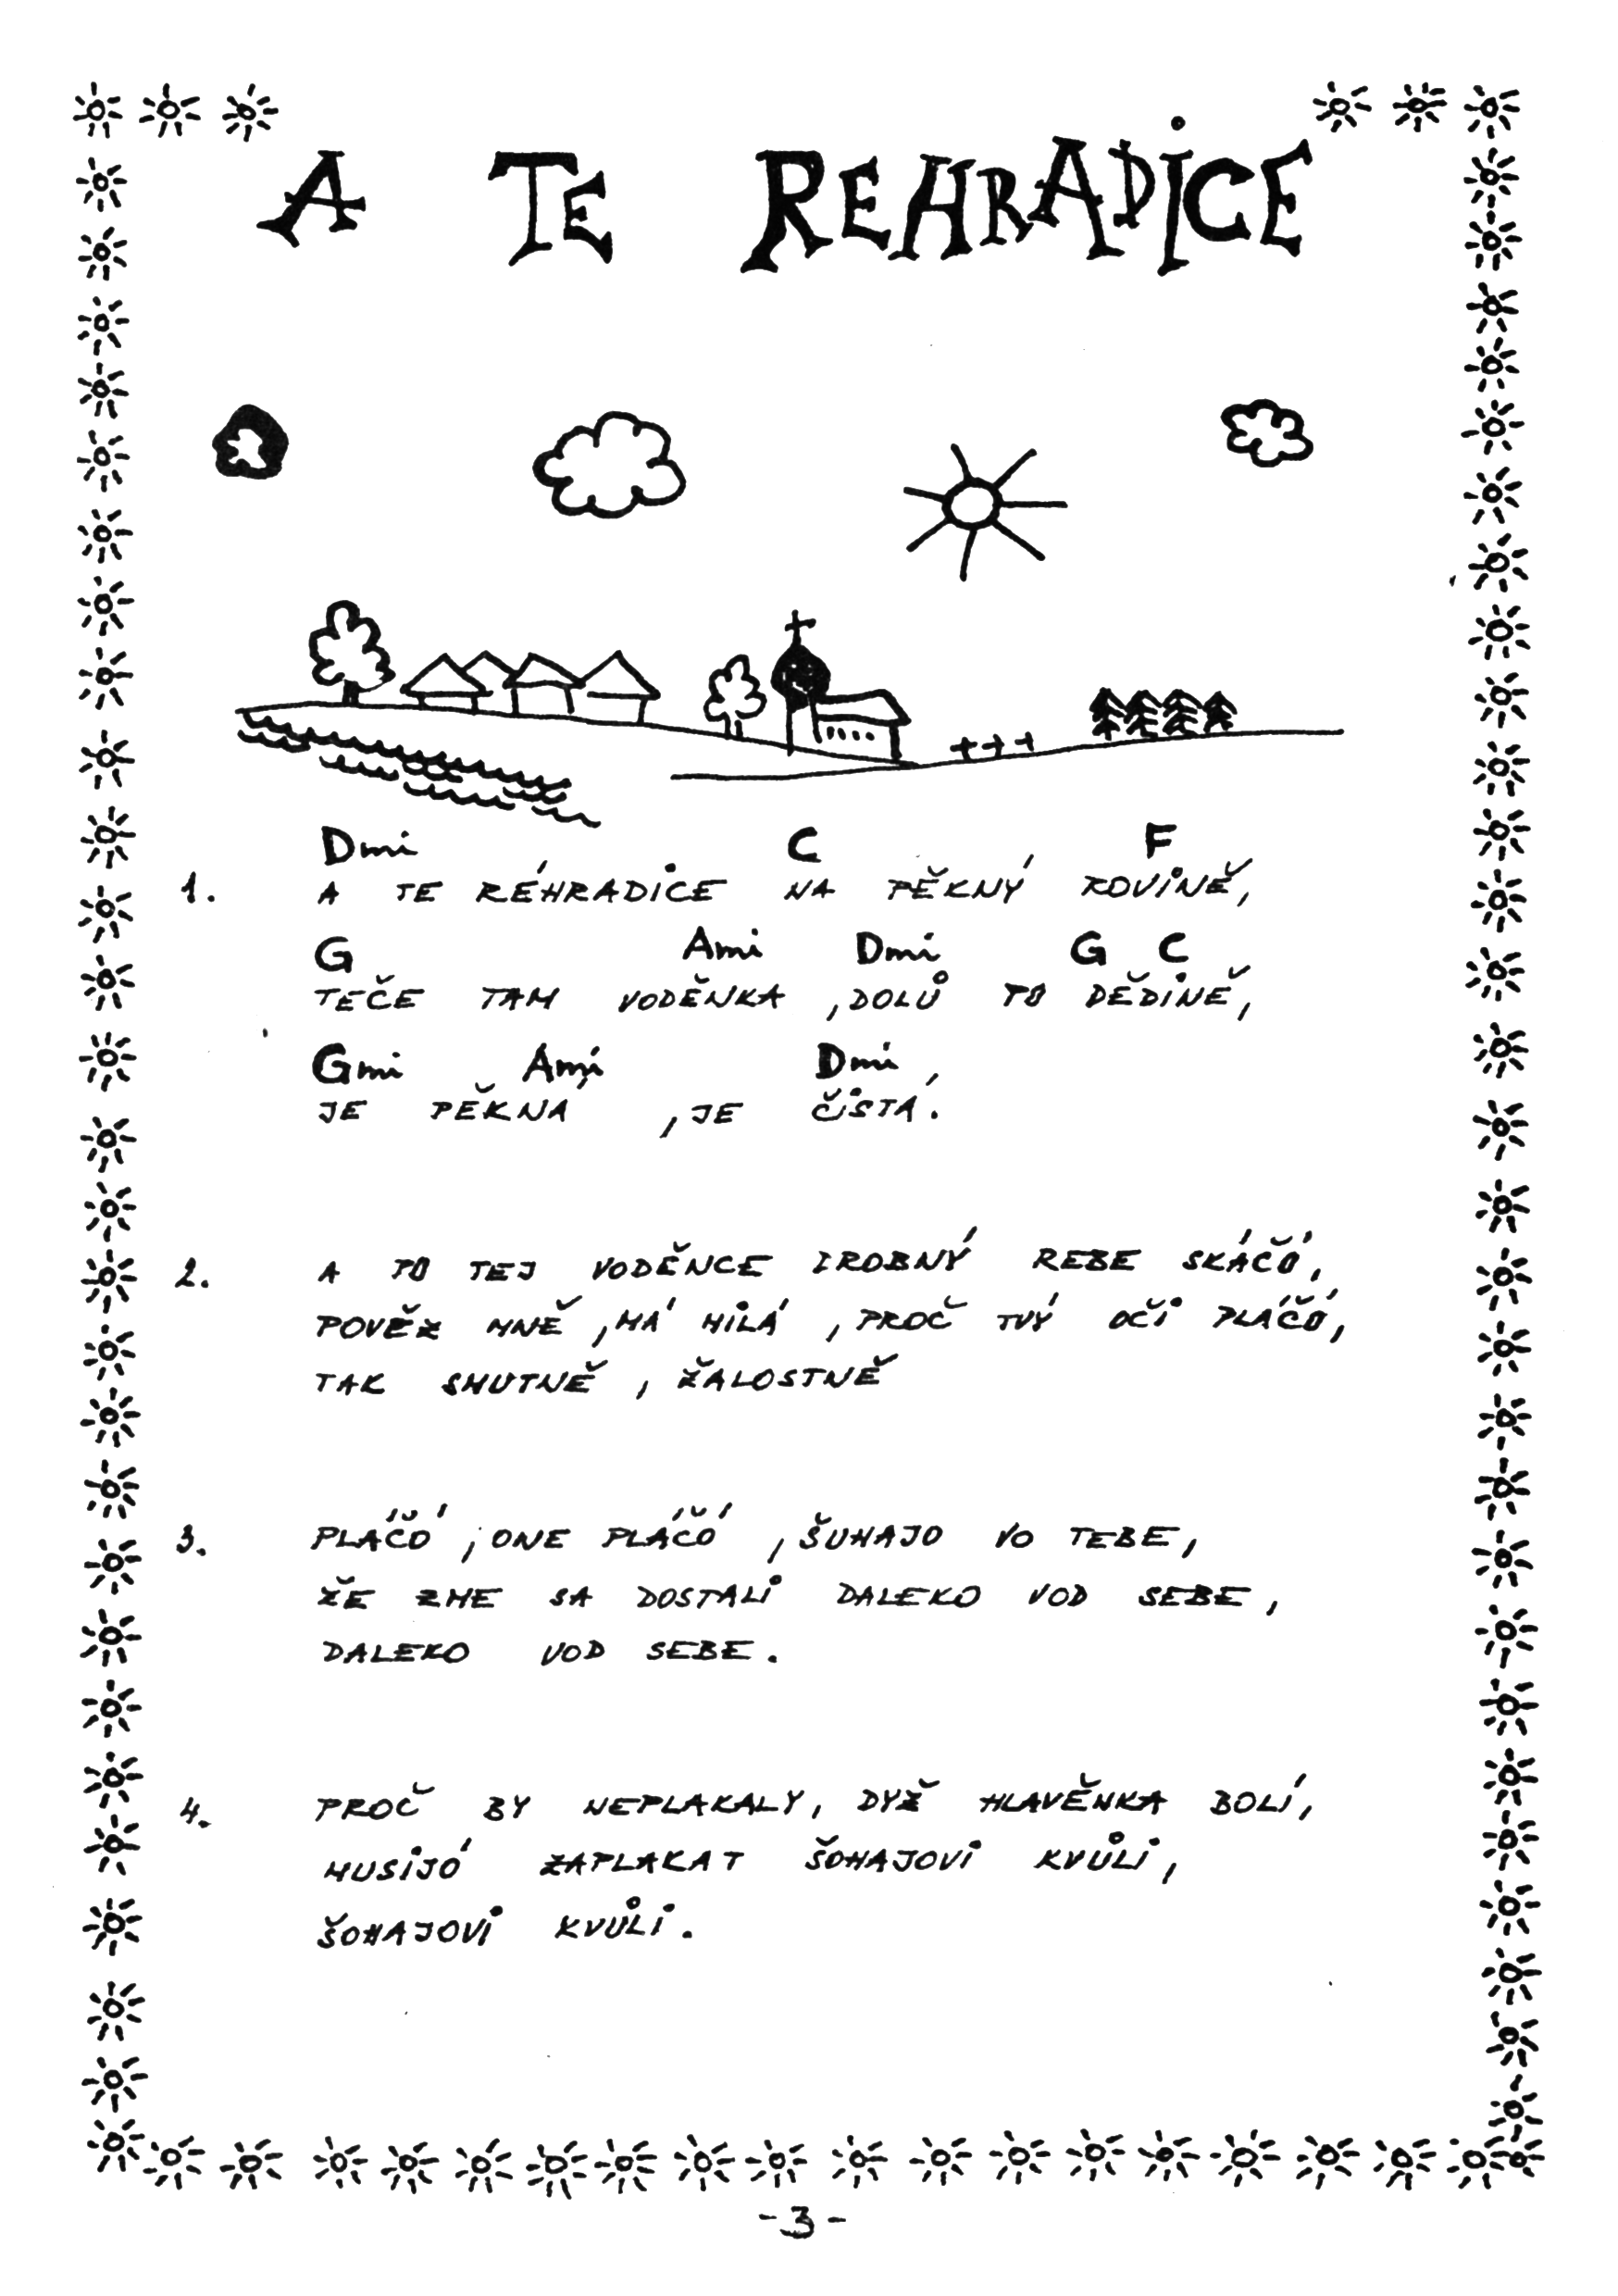 A TE REHRADICE
Dmi C F
1. A TE RÉHRADICE NA PĚKNÝ ROVINĚ,
G Ami Dmi G C
TEČE TAM VODĚNKA, DOLŮ PO DĚDINĚ,
Gmi Ami Dmi
JE PĚKNÁ, JE ČISTÁ.
2. A PO TEJ VODĚNCE DROBNÝ REBE SKÁČÓ,
POVĚZ MNĚ, MÁ MILÁ, PROČ TVÝ OČI PLÁČÓ,
TAK SMUTNĚ, ŽALOSTNĚ
3. PLÁČÓ, ONE PLÁČÓ, ŠUHAJO VO TEBE,
ŽE ZME SA DOSTALI DALEKO VOD SEBE,
DALEKO VOD SEBE.
4. PROČ BY NEPLAKALY, DYŽ HLAVĚNKA BOLÍ,
MUSIJÓ ZAPLAKAT ŠOHAJOVI KVŮLI,
ŠOHAJOVI KVŮLI.
-3-